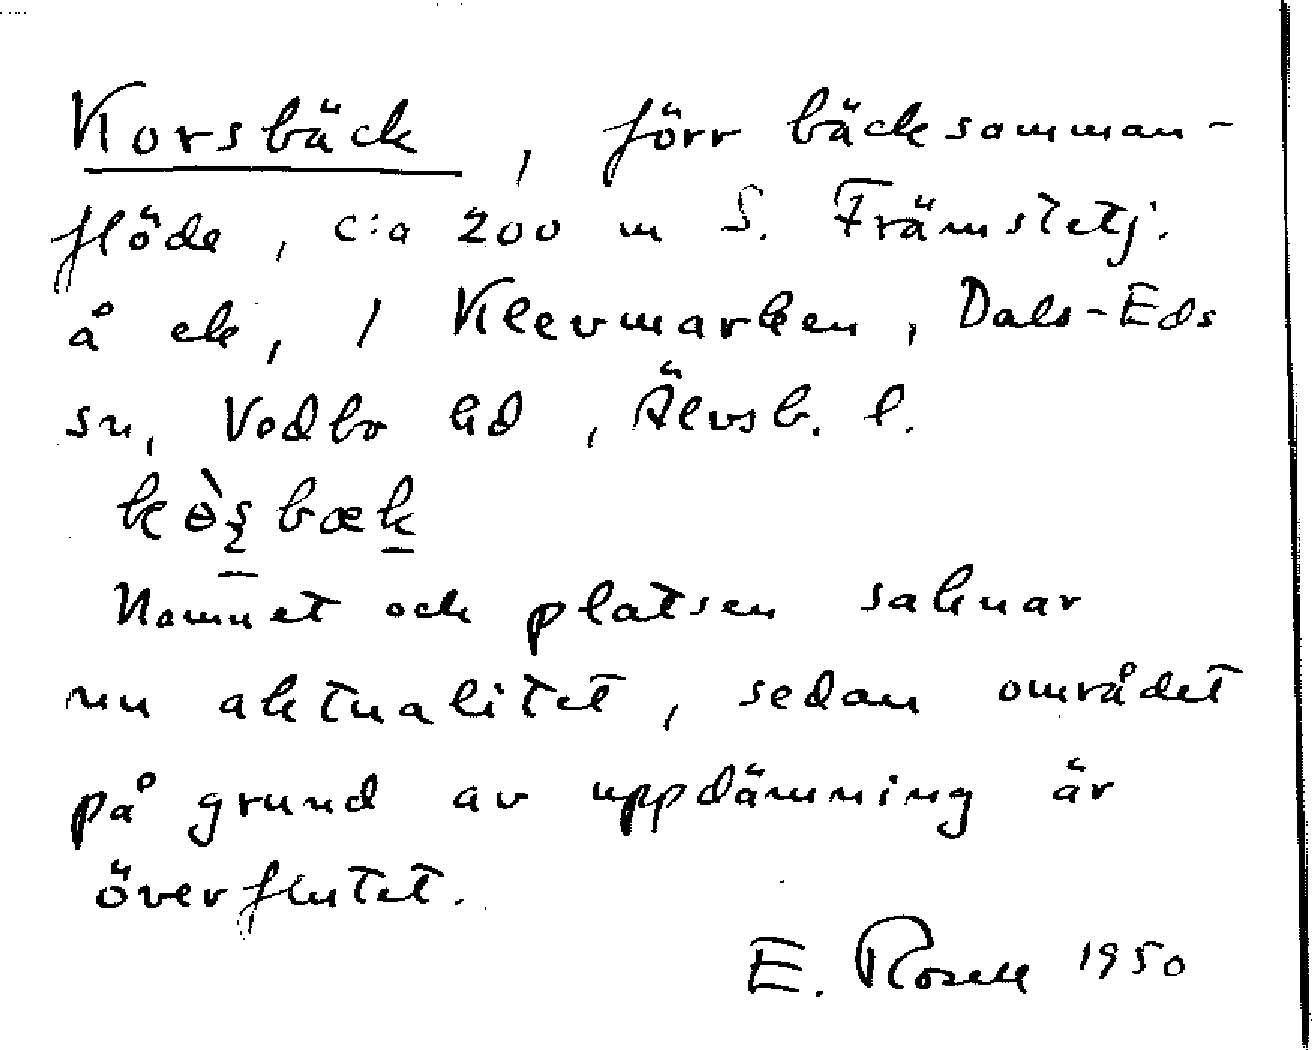 Korsbäck, förr bäcksamman-
flöde, c:a 200 m S. Främsletj.
å ek, 1 Klevmarken, Dals-Eds
sn, Vedbo hd, Älvsb. l.
Namnet och platsen saknar
nu aktualitet, sedan området
på grund av uppdämning är
överflutet.
E. Rosell 1950